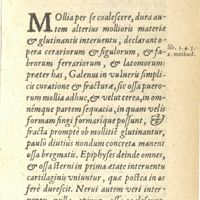 Mollia per se coalescere, dura au-
tem alterius mollioris materiæ
& glutinantis interuentu, declarant o-
pera cerariorum & figulorum, & fa-
brorum ferrariorum, & latomorum:
præter has, Galenus in vulneris simpli-
cis curatione & fracturæ, sic ossa puero-
rum mollia adhuc, & velut cerea, in om-
némque partem sequacia, in quam velis
formam fingi formarique possunt, &
fracta prompte ob mollitiē glutinantur,
paulò diutius nondum concreta manent
ossa bregmatis. Epiphyses deinde omnes,
& ossa sterni in prima ætate interuentu
cartilaginis vniuntur, quæ postea in os
ferè durescit. Nerui autem veri inter-
lib. 3. 4. 5.
6. method.